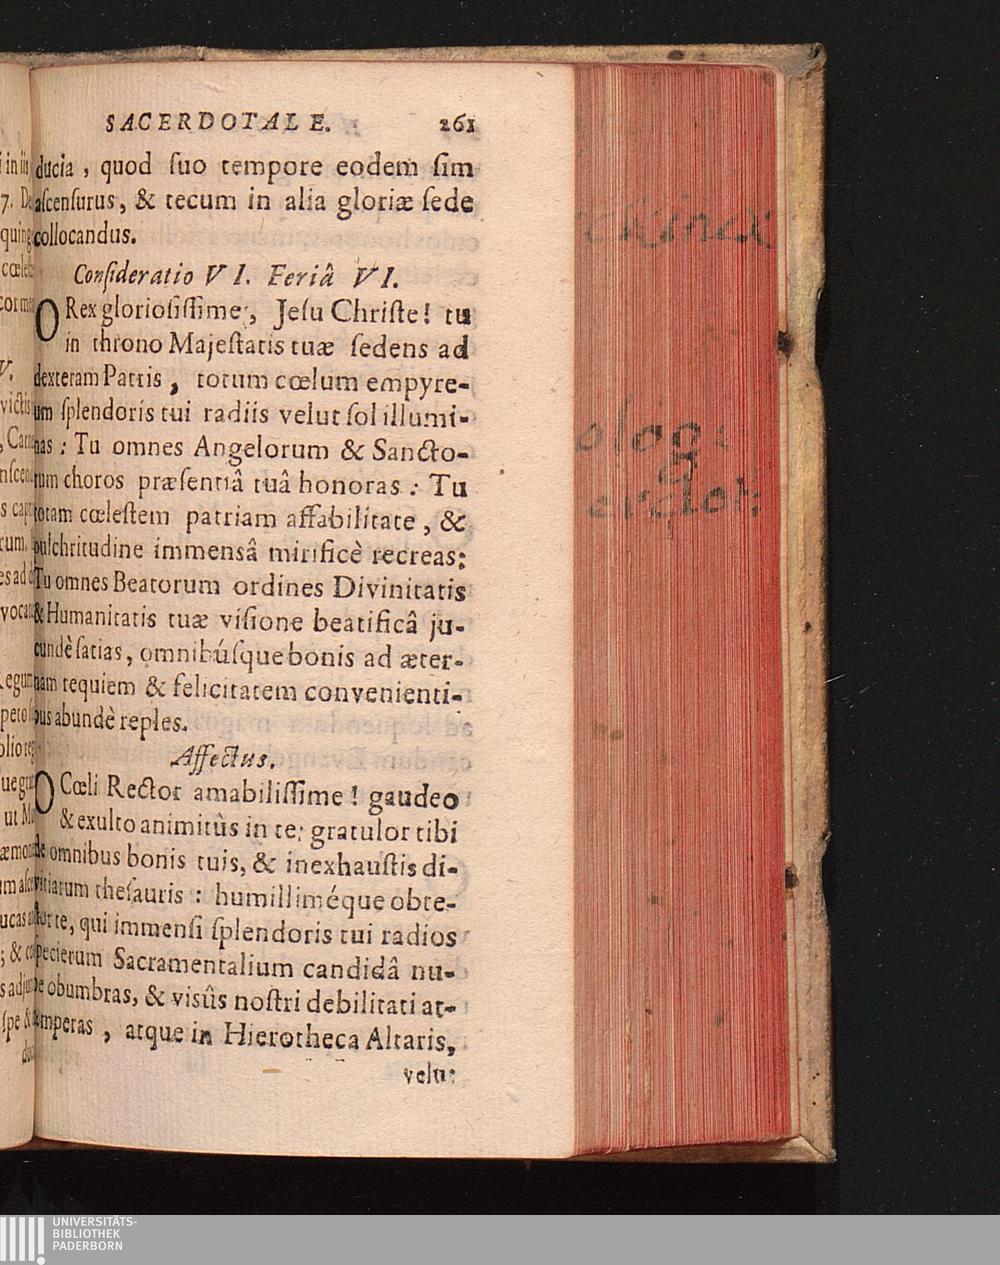 SACERDOTALE. 261
ducia, quod ſuo tempore eodem ſim
aſcenſurus, & tecum in alia gloriæ ſede
collocandus.
Conſideratio VI. Feriâ VI.
O Rex glorioſiſſime, Jeſu Chriſte! tu
in throno Majeſtatis tuæ ſedens ad
dexteram Patris, totum cœlum empyre-
um ſplendoris tui radiis velut ſol illumi-
nas: Tu omnes Angelorum & Sancto-
rum choros præſentiâ tuâ honoras: Tu
totam cœleſtem patriam affabilitate, &
pulchritudine immensâ mirificè recreas:
Tu omnes Beatorum ordines Divinitatis
& Humanitatis tuæ viſione beatificâ ju-
cundè ſatias, omnibúſque bonis ad æter-
nam requiem & felicitatem convenienti-
bus abundè reples.
Affectus.
O Cœli Rector amabiliſſime! gaudeo
& exulto animitùs in te; gratulor tibi
de omnibus bonis tuis, & inexhauſtis di-
vitiarum theſauris: humilliméque obte-
ſtor te, qui immenſi ſplendoris tui radios
ſpecierum Sacramentalium candidâ nu-
be obumbras, & visûs noſtri debilitati at-
temperas, atque in Hierotheca Altaris,
velut
UNIVERSITÄTS-
BIBLIOTHEK
PADERBORN